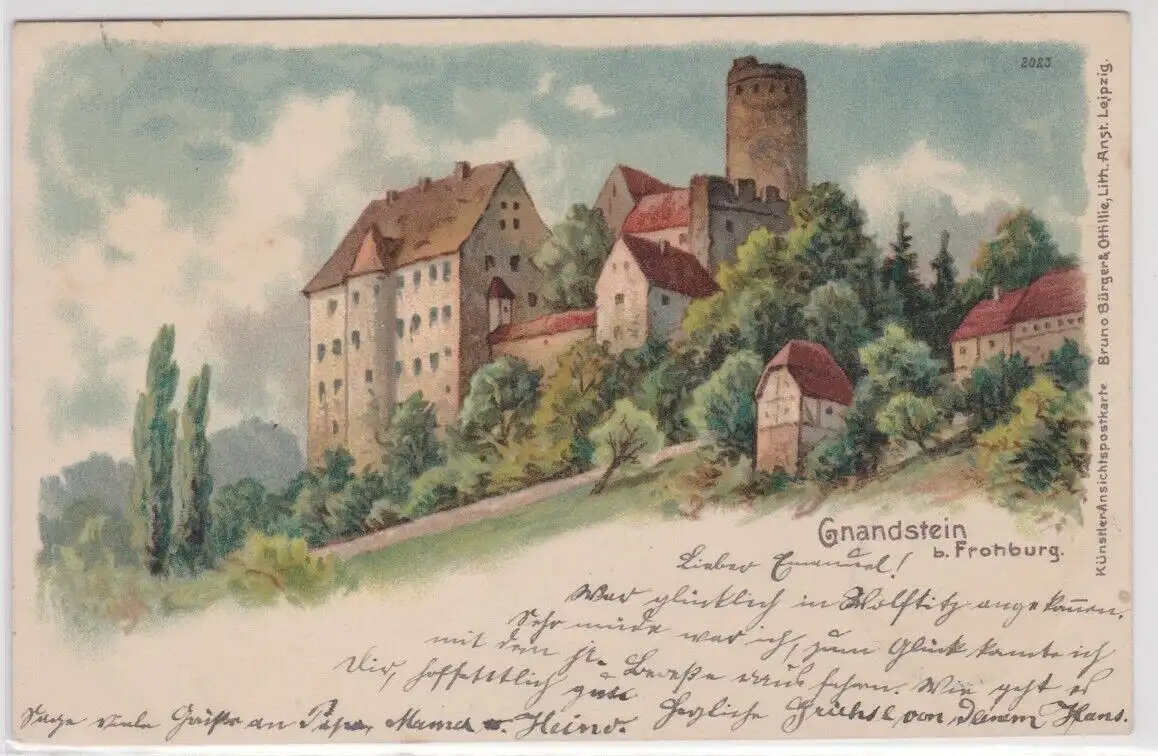 2023
Künstler-Ansichtspostkarte Bruno Bürger & Ottillie, Lith. Anst. Leipzig.
Gnandstein
b. Frohburg.
Lieber Emanuel!
War glücklich in Wolftitz angekommen.
Sehr müde war ich, zum Glück konnte ich
mit dem fahren. Wie geht es
Dir, hoffentlich gut
Herzliche Grüße von Deinem Hans.
Sage viele Grüße an Papa, Mama u. Heino.